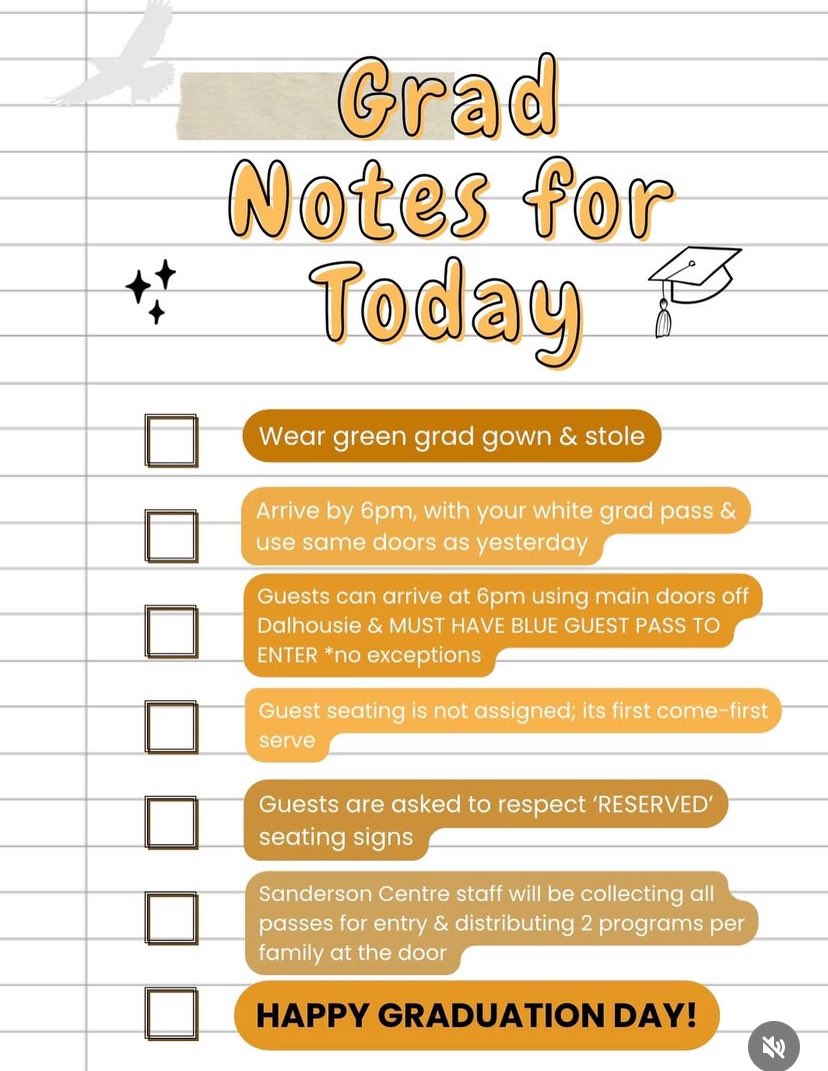 Grad
Notes for
Today
Wear green grad gown & stole
Arrive by 6pm, with your white grad pass &
use same doors as yesterday
Guests can arrive at 6pm using main doors off
Dalhousie & MUST HAVE BLUE GUEST PASS TO
ENTER *no exceptions
Guest seating is not assigned; its first come-first
serve
Guests are asked to respect ‘RESERVED’
seating signs
Sanderson Centre staff will be collecting all
passes for entry & distributing 2 programs per
family at the door
HAPPY GRADUATION DAY!